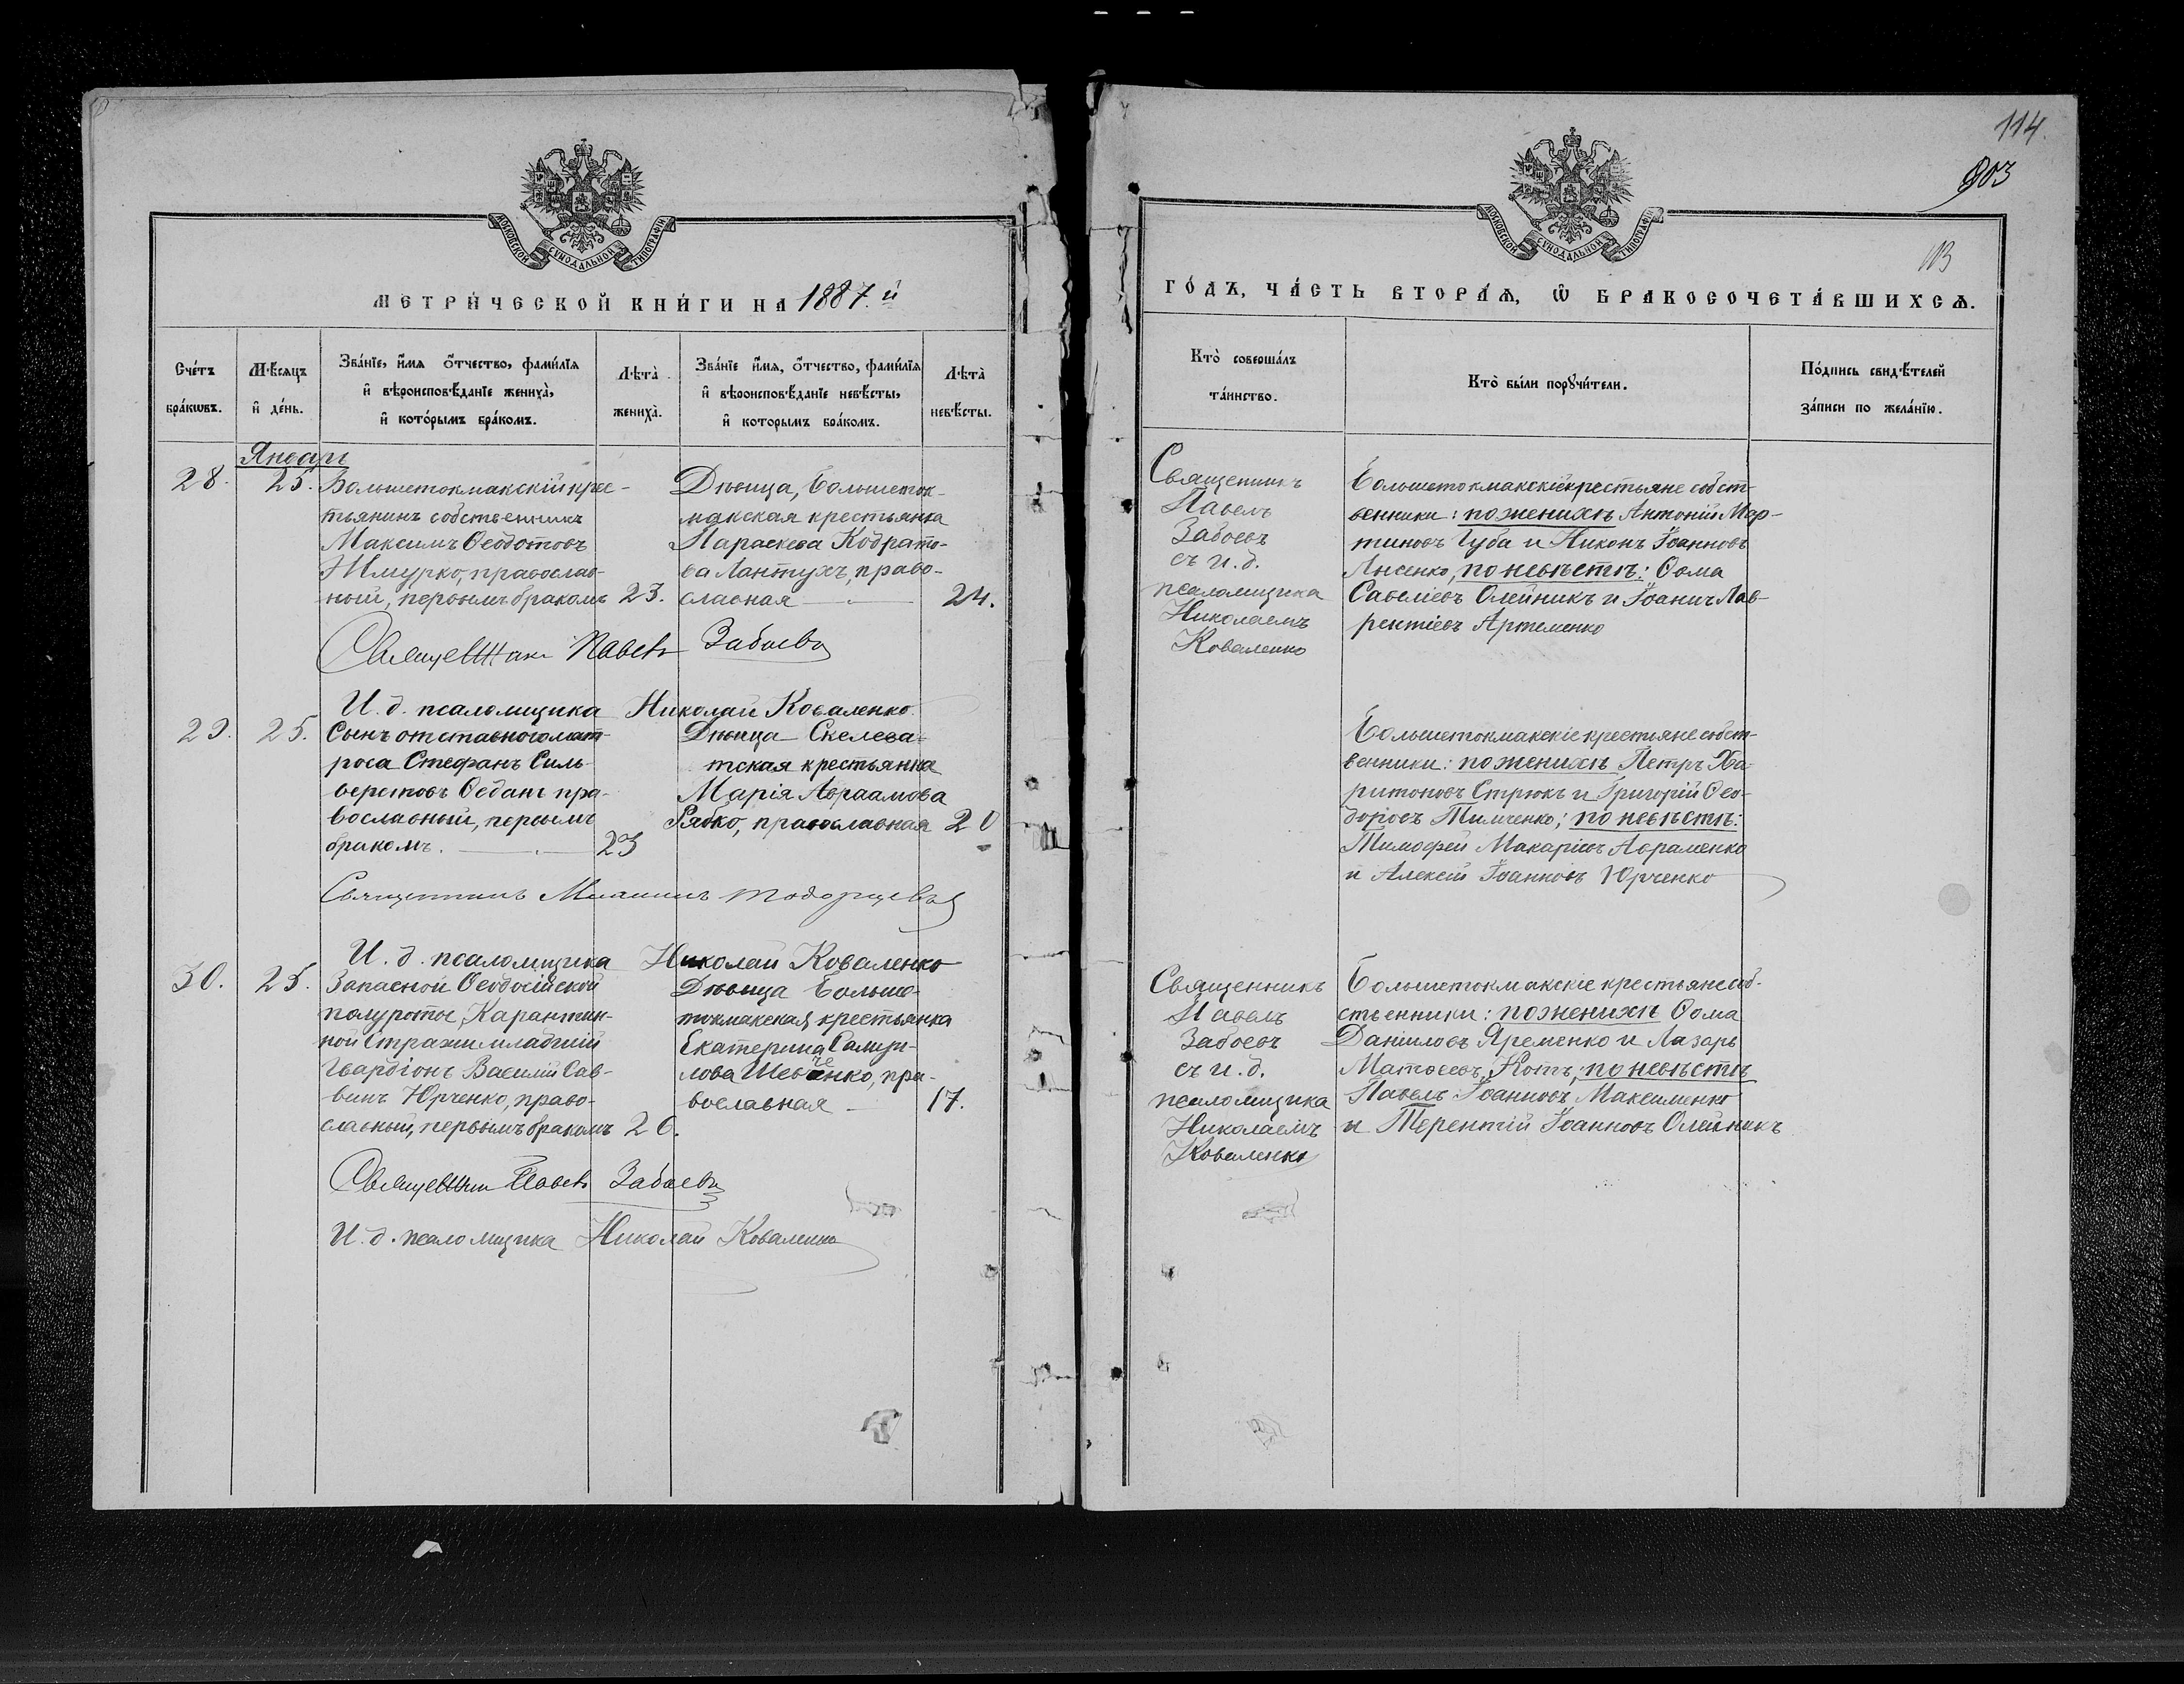 114.
903
113
МОСКОВСКОЙ СѴНОДАЛЬНОЙ ТИПОГРАФІИ
МЕТРИ́ЧЕСКОЙ КНИ́ГИ НА 1887.й
Сче́тъ бра́кωвъ.
Мѣ́сяцъ и҆ де́нь.
Зва́нїе, и҆́мя ѻ҆́тчество, фами́лїя
и҆ вѣроисповѣ́данїе жениха̀,
и҆ кото́рымъ бра́комъ.
Лѣта̀ жениха̀.
Зва́нїе и҆́мя, ѻ҆́тчество, фами́лїя
и҆ вѣроисповѣ́данїе невѣ́сты,
и҆ которымъ бра́комъ.
Лѣта̀ невѣ́сты.
Январь
28.
25.
Большетокмакскій крес-
тьянинъ собственникъ
Максимъ Ѳеодотовъ
Жмурко, православ-
ный, первымъ бракомъ
23.
Дѣвица, Большеток-
макская крестьянка
Параскева Кодрато-
ва Лантухъ, право-
славная
24.
Священникъ Павелъ Забоевъ
И. д. псаломщика Николай Коваленко.
29.
25.
Сынъ отставного мат-
роса Стефанъ Силь-
верстовъ Седанъ пра-
вославный, первымъ
бракомъ.
23
Дѣвица Скелева-
тская крестьянка
Марія Авраамова
Рябко, православная
20
Священникъ
И. д. псаломщика Николай Коваленко
30.
25.
Запасной Ѳеодосійской
полуроты, Карантин-
ной Стражи младшій
Гвардіонъ Василій Сав-
винъ Юрченко, право-
славный, первымъ бракомъ
26.
Дѣвица Больше-
токмакская крестьянка
Екатерина Самуи-
лова Шевченко, пра-
вославная
17.
Священникъ Павелъ Забоевъ
И. д. псаломщика Николай Коваленко
МОСКОВСКОЙ СѴНОДАЛЬНОЙ ТИПОГРАФІИ
ГО́ДЪ, ЧА́СТЬ ВТОРА́Ѧ, Ѽ БРАКОСОЧЕТА́ВШИХСѦ.
Кто̀ соверша́лъ
та́инство.
Кто̀ бы́ли порꙋчи́тели.
По́дпись свидѣ́телей
за́писи по жела́нїю.
Священникъ
Павелъ
Забоевъ
съ и. д.
псаломщика
Николаемъ
Коваленко
Большетокмакскіе крестьяне собст-
венники: по женихѣ Антоній Мар-
тиновъ Губа и Никонъ Іоанновъ
Лисенко, по невѣстѣ: Ѳома
Савеліевъ Олейникъ и Іоаннъ Лав-
рентіевъ Артеменко
Большетокмакскіе крестьяне собст-
венники: по женихѣ Петръ Ха-
ритоновъ Стрюкъ и Григорій Ѳео-
доровъ Тимченко; по невѣстѣ:
Тимофей Макаріевъ Авраменко
и Алексій Іоанновъ Юрченко
Священникъ
Павелъ
Забоевъ
съ и. д.
псаломщика
Николаемъ
Коваленко
Большетокмакскіе крестьяне соб-
ственники: по женихѣ Ѳома
Даніиловъ Яременко и Лазарь
Матѳеевъ Котъ; по невѣстѣ
Павелъ Іоанновъ Максименко
и Терентій Іоанновъ Олейникъ